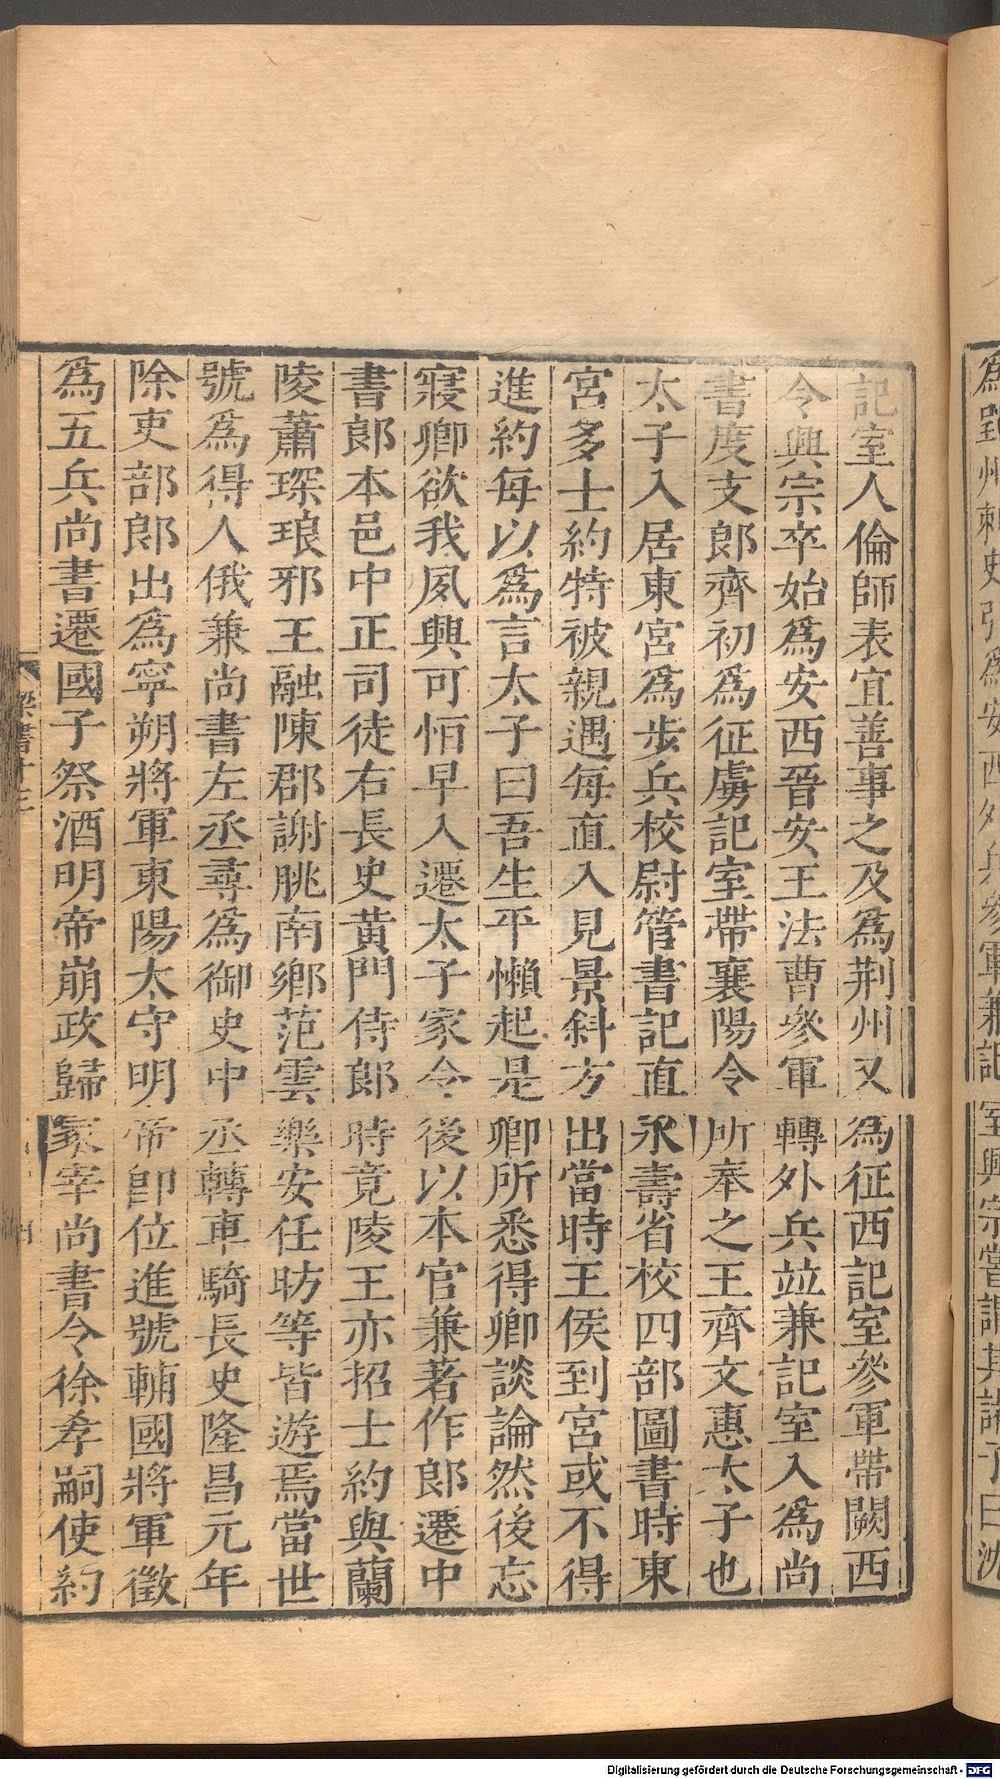 記室人倫師表宜善事之及為荆州又為征西記室參軍帶闕西
令興宗卒始為安西晉安王法曹參軍轉外兵竝兼記室入為尚
書度支郎齊初為征虜記室帶襄陽令所奉之王齊文惠太子也
太子入居東宮為步兵校尉管書記直永壽省校四部圖書時東
宮多士約特被親遇每直入見景斜方出當時王侯到宮或不得
進約每以為言太子曰吾生平懶起是卿所悉得卿談論然後忘
寢卿欲我夙興可恒早入遷太子家令後以本官兼著作郎遷中
書郎本邑中正司徒右長史黃門侍郎時竟陵王亦招士約與蘭
陵蕭琛琅邪王融陳郡謝朓南鄉范雲樂安任昉等皆遊焉當世
號為得人俄兼尚書左丞尋為御史中丞轉車騎長史隆昌元年
除吏部郎出為寧朔將軍東陽太守明帝卽位進號輔國將軍徵
為五兵尚書遷國子祭酒明帝崩政歸冢宰尚書令徐孝嗣使約
梁書十三
州刺史
為安西外兵參軍兼記室興宗嘗謂其諸子曰沈
Digitalisierung gefördert durch die Deutsche Forschungsgemeinschaft - DFG